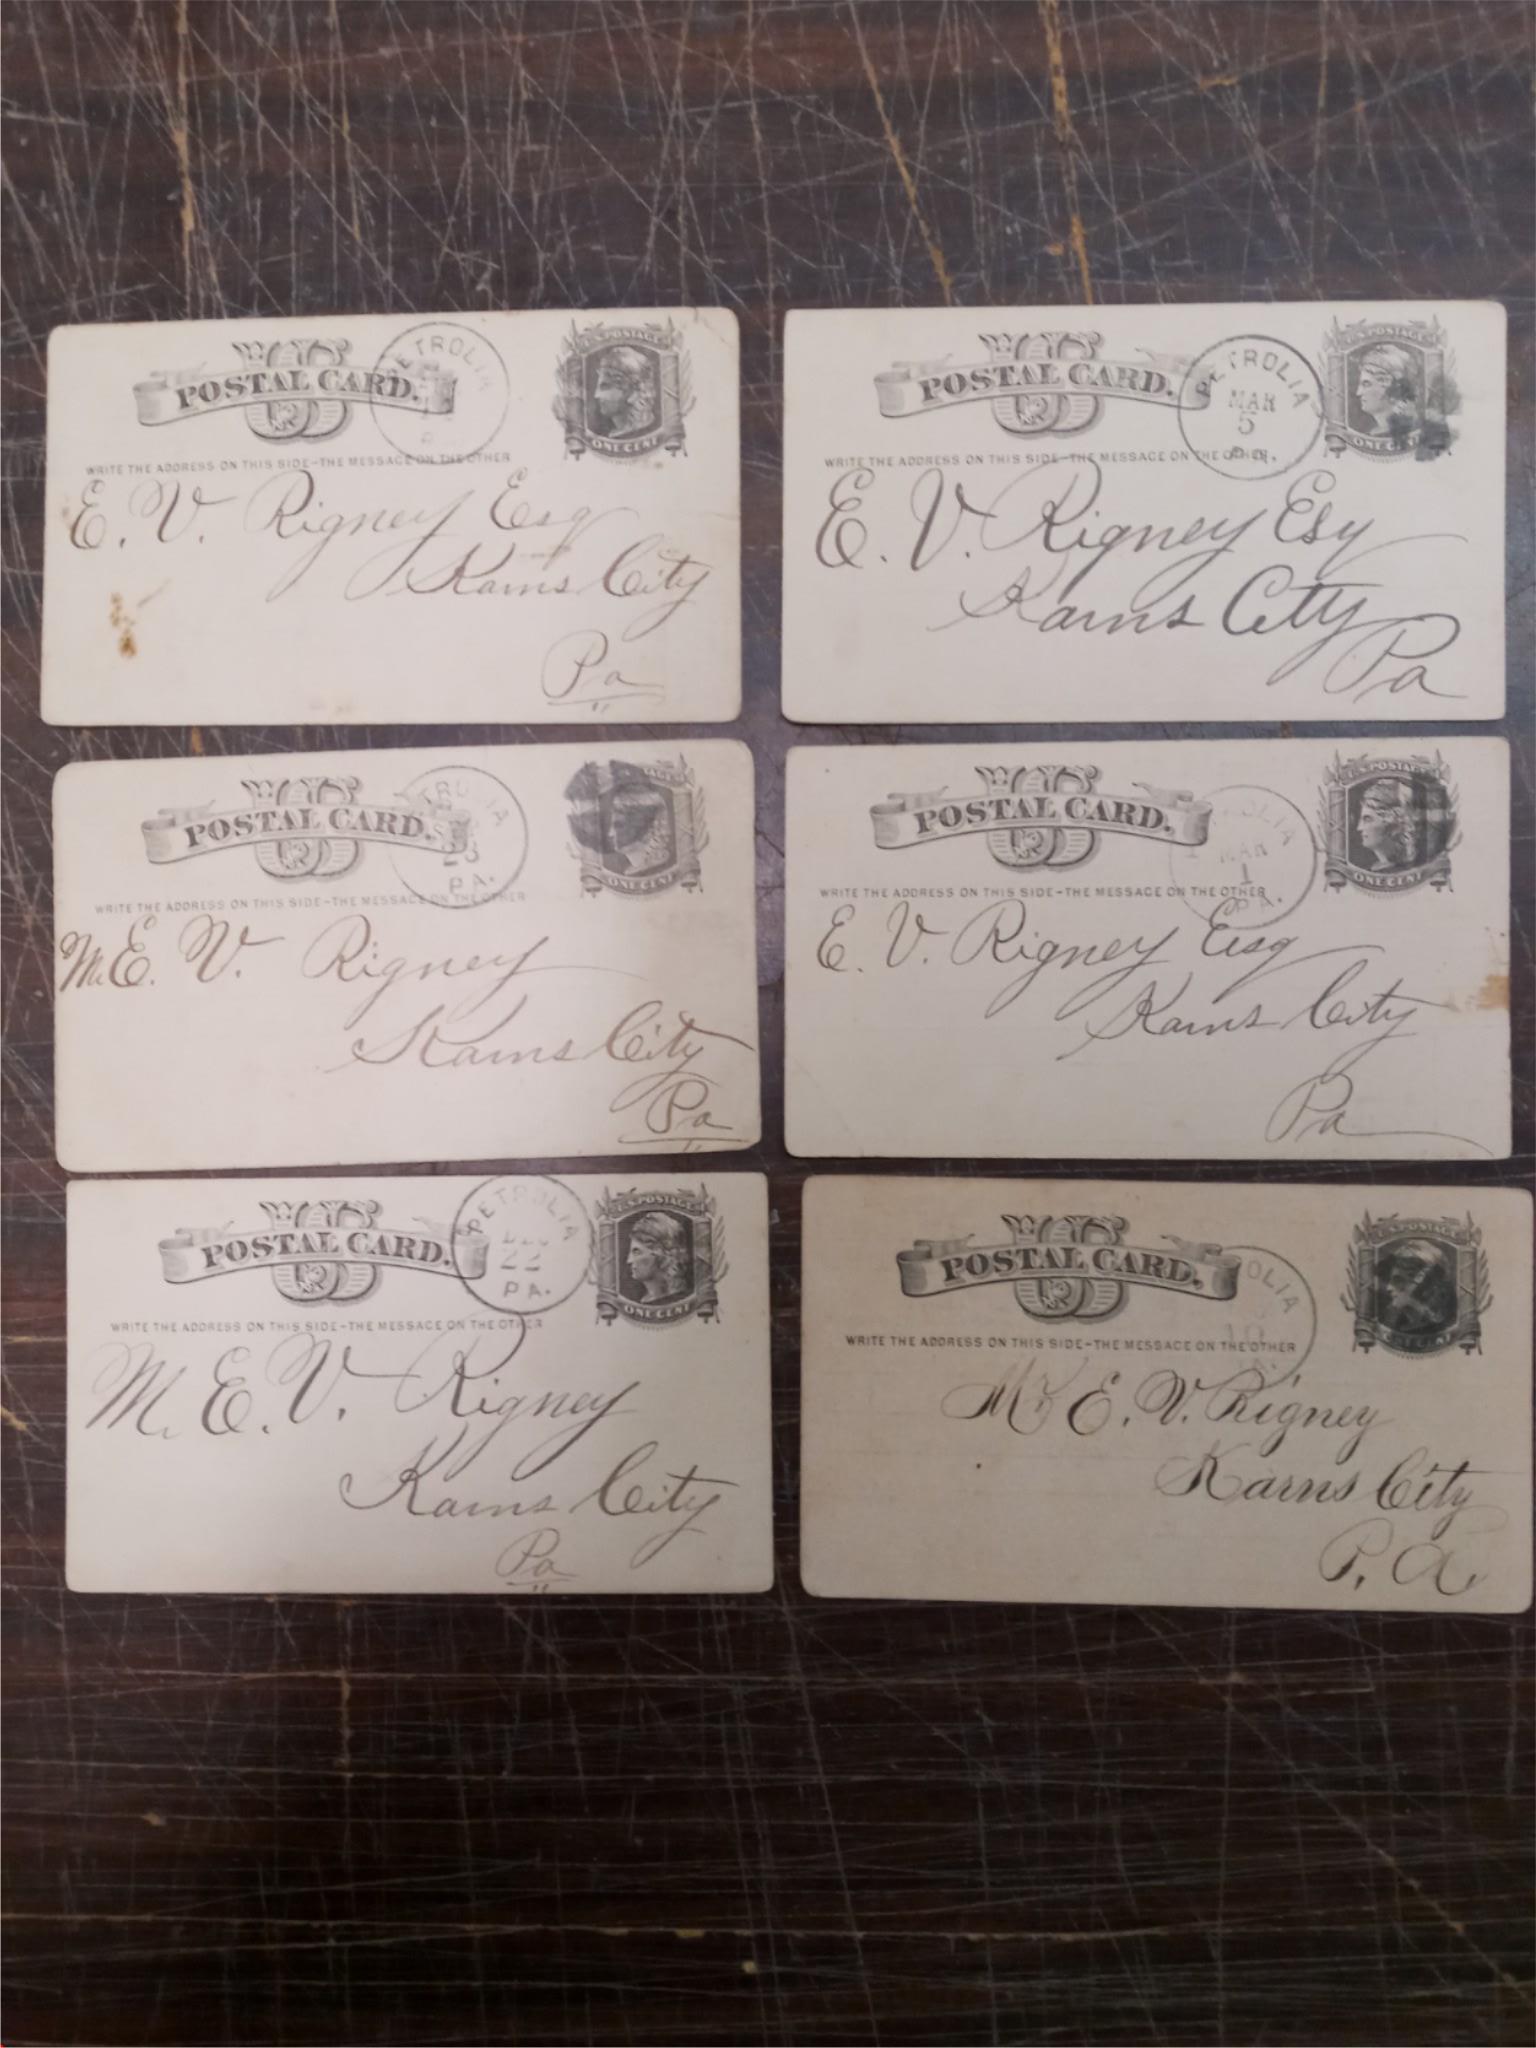 US
POSTAL CARD.
PETROLIA
U.S. POSTAGE
ONE CENT
WRITE THE ADDRESS ON THIS SIDE-THE MESSAGE ON THE OTHER
E. V. Rigney Esq
Karns City
Pa
US
POSTAL CARD.
PETROLIA
MAR
5
PA.
U.S. POSTAGE
ONE CENT
WRITE THE ADDRESS ON THIS SIDE-THE MESSAGE ON THE OTHER.
E. V. Rigney Esq
Karns City
Pa
US
POSTAL CARD.
PA.
ONE CENT
WRITE THE ADDRESS ON THIS SIDE-THE MESSAGE ON THE OTHER
Mr E. V. Rigney
Karns City
Pa
US
POSTAL CARD.
MAR
1
PA.
U.S. POSTAGE
ONE CENT
WRITE THE ADDRESS ON THIS SIDE-THE MESSAGE ON THE OTHER
E. V. Rigney Esq
Karns City
Pa
US
POSTAL CARD.
PETROLIA
DEC
22
PA.
U.S. POSTAGE
ONE CENT
WRITE THE ADDRESS ON THIS SIDE-THE MESSAGE ON THE OTHER
M. E. V. Rigney
Karns City
Pa
US
POSTAL CARD.
U.S. POSTAGE
WRITE THE ADDRESS ON THIS SIDE-THE MESSAGE ON THE OTHER
Mr E. V. Rigney
Karns City
P. A.